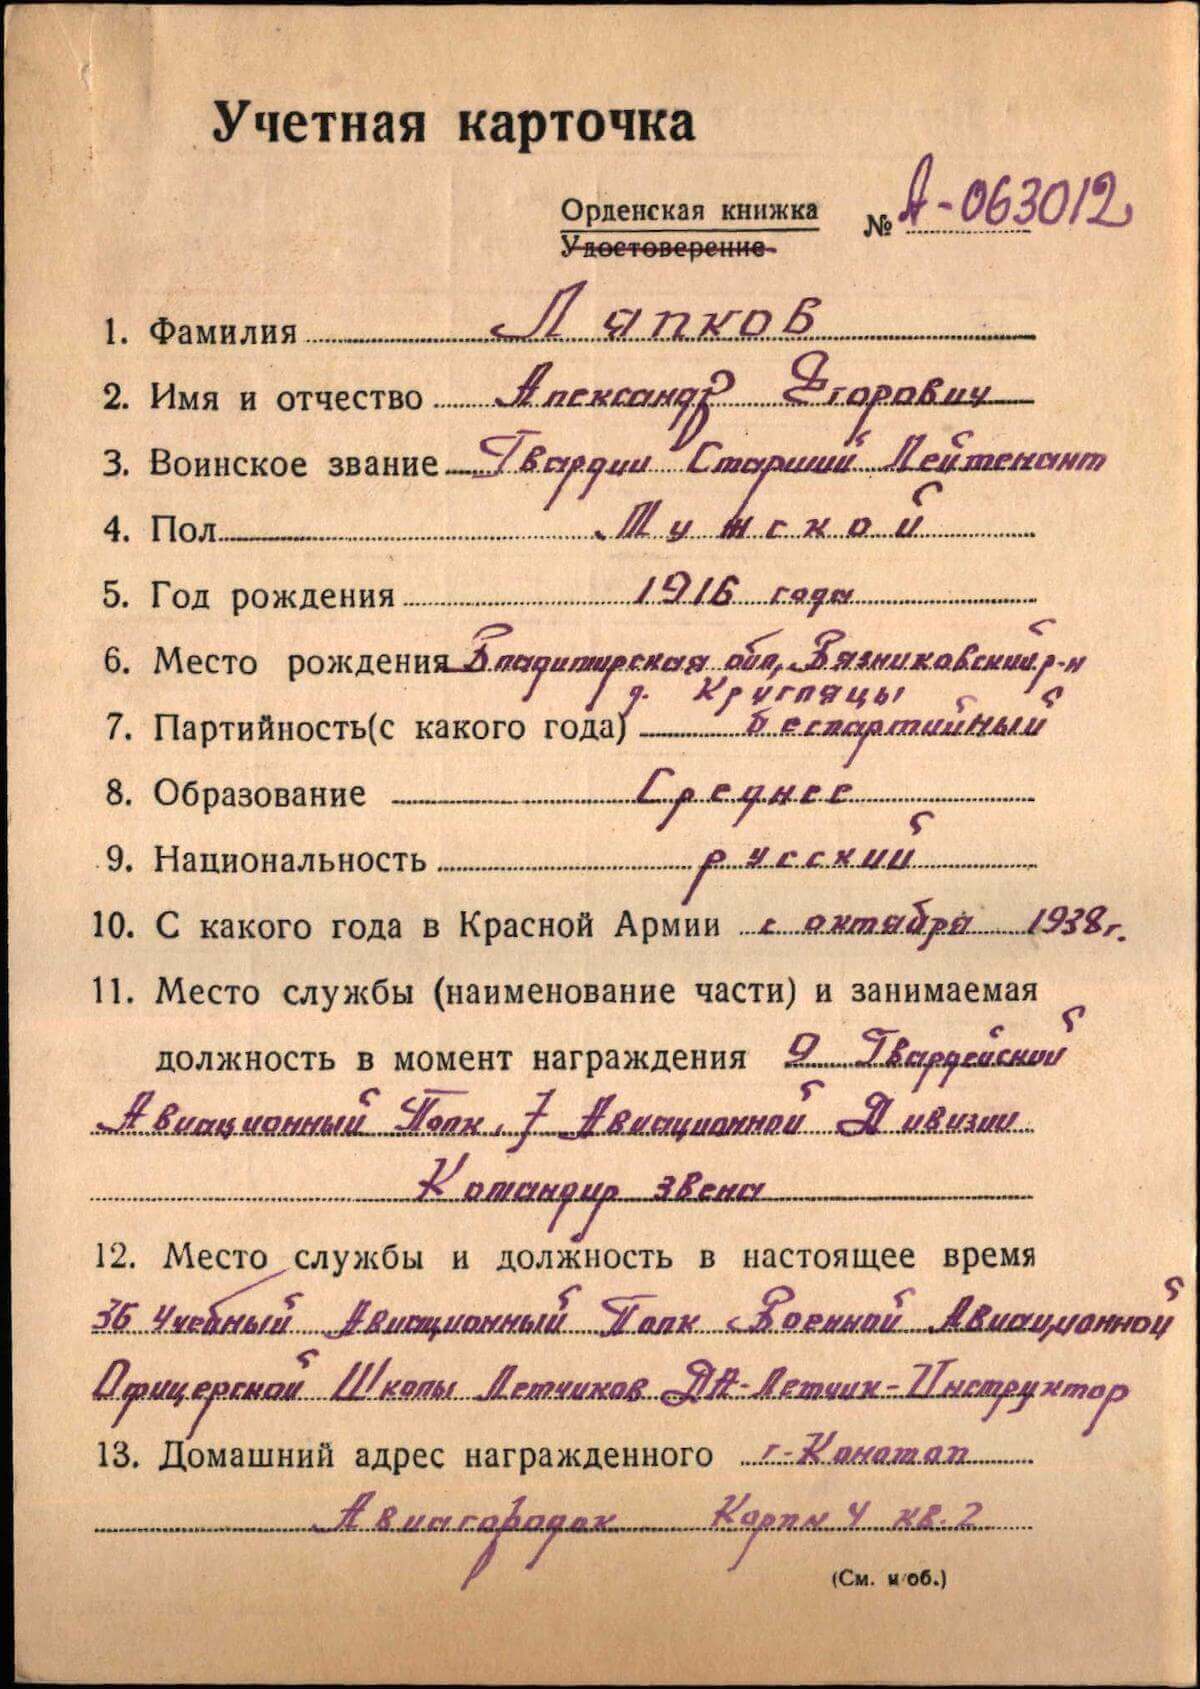 Учетная карточка
Орденская книжка № А-063012
Удостоверение
1. Фамилия Лапков
2. Имя и отчество Александр Егорович
3. Воинское звание Гвардии Старший Лейтенант
4. Пол Мужской
5. Год рождения 1916 года
6. Место рождения Владимирская обл, Вязниковский р-н
д. Кругляцы
7. Партийность(с какого года) беспартийный
8. Образование Среднее
9. Национальность русский
10. С какого года в Красной Армии с октября 1938г.
11. Место службы (наименование части) и занимаемая
должность в момент награждения 9 Гвардейской
Авиационный Полк, 7 Авиационной Дивизии
Командир звена
12. Место службы и должность в настоящее время
36 Учебный Авиационный Полк Военной Авиационной
Офицерской Школы Летчиков ДА-Летчик-Инструктор
13. Домашний адрес награжденного г-Конотоп
Авиагородок Корпм 4 кв.2
(См. и об.)